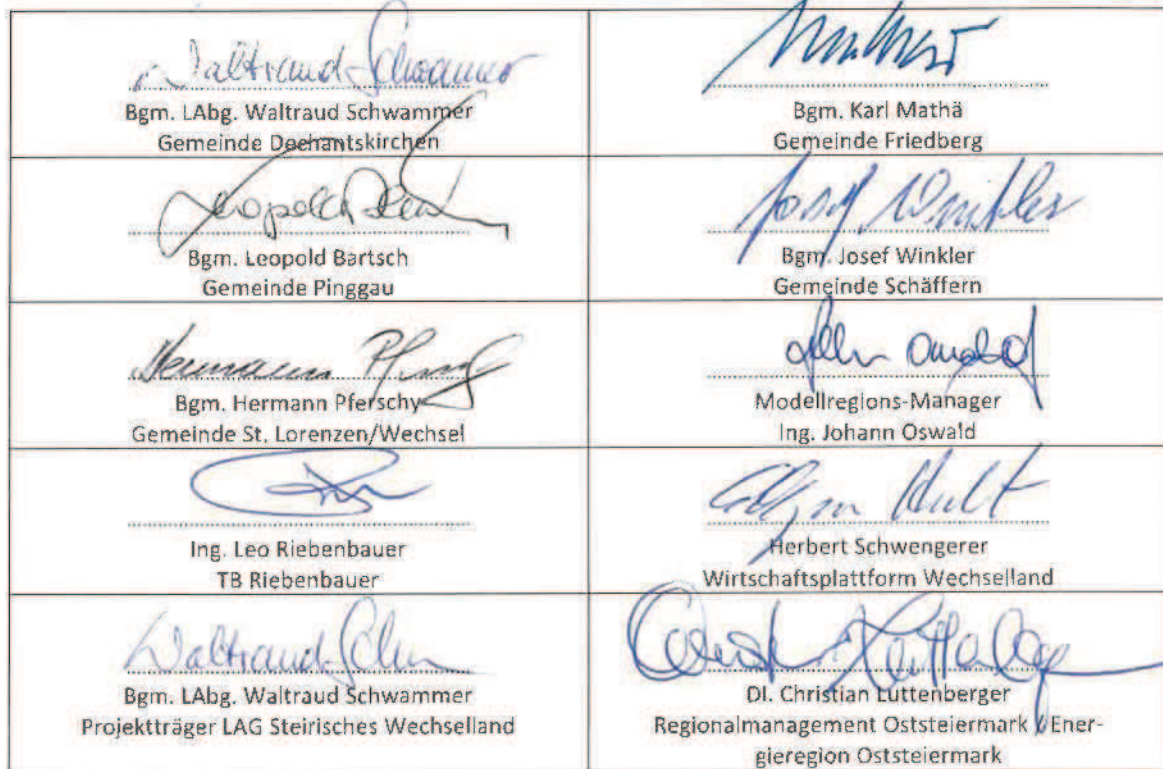 Waltraud Schwammer
Bgm. LAbg. Waltraud Schwammer
Gemeinde Dechantskirchen
Bgm. Karl Mathä
Gemeinde Friedberg
Leopold
Bgm. Leopold Bartsch
Gemeinde Pinggau
Josef Winkler
Bgm. Josef Winkler
Gemeinde Schäffern
Hermann
Bgm. Hermann Pferschy
Gemeinde St. Lorenzen/Wechsel
Modellregions-Manager
Ing. Johann Oswald
Ing. Leo Riebenbauer
TB Riebenbauer
Herbert Schwengerer
Wirtschaftsplattform Wechselland
Waltraud
Bgm. LAbg. Waltraud Schwammer
Projektträger LAG Steirisches Wechselland
DI. Christian Luttenberger
Regionalmanagement Oststeiermark / Ener-
gieregion Oststeiermark